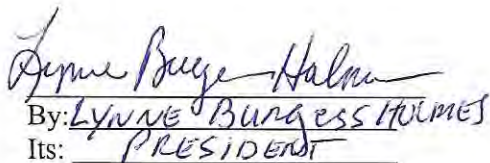 Lynne Burgess Holmes
By: LYNNE BURGESS HOLMES
Its: PRESIDENT